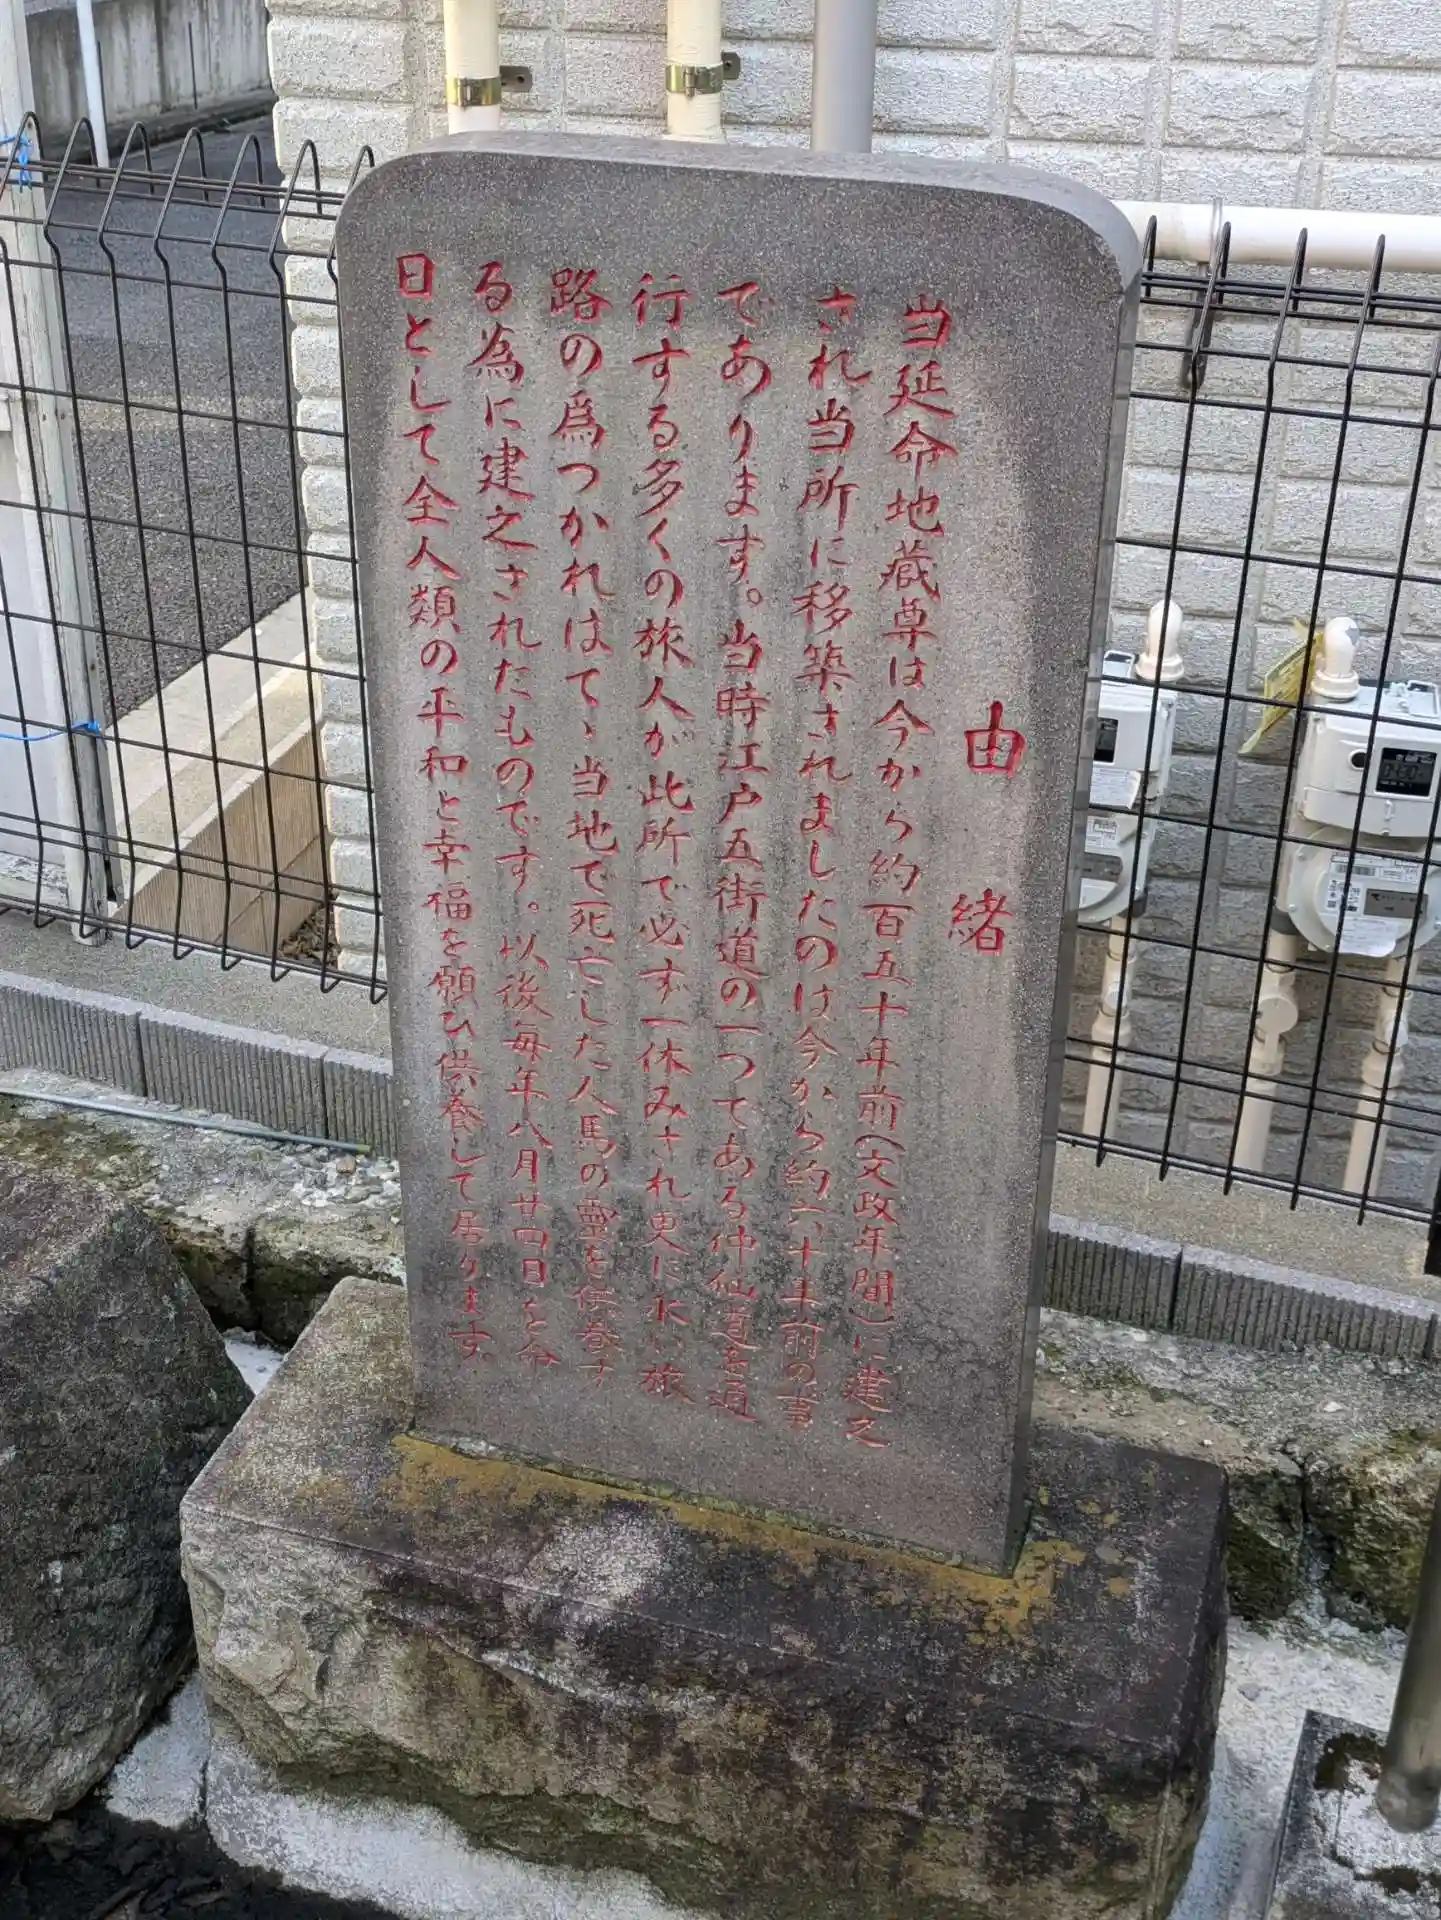 由緒
当延命地蔵尊は今から約百五十年前(文政年間)に建之
され当所に移築されましたのは今から約六十年前の事
であります。当時江戸五街道の一つである仲仙道を通
行する多くの旅人が此所で必ず一休みされ更に永い旅
路の為つかれはてゝ当地で死亡した人馬の霊を供養す
る為に建之されたものです。以後毎年八月廿四日を命
日として全人類の平和と幸福を願ひ供養して居ります。